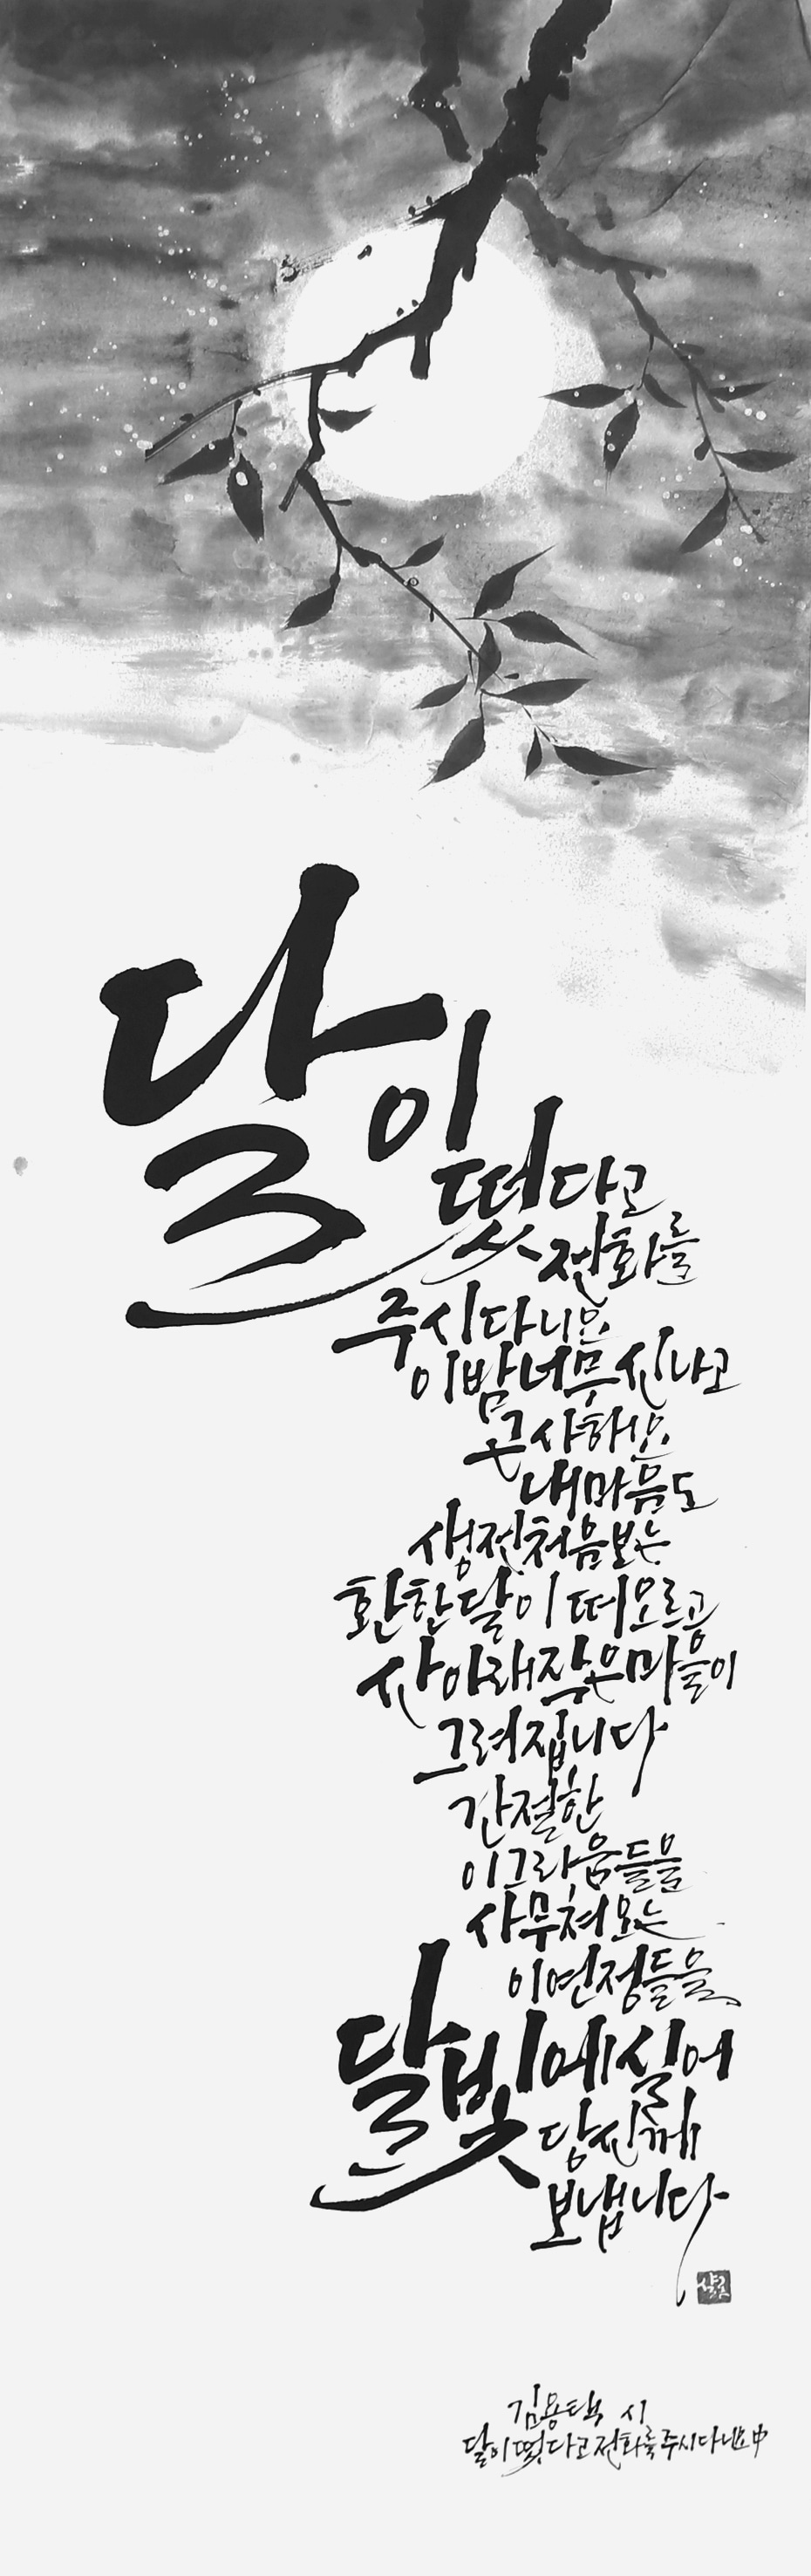 달이 떴다고
전화를
주시다니요
이밤 너무 신나고
근사해요
내마음도
생전 처음 보는
환한 달이 떠오르고
산아래 작은 마을이
그려집니다
간절한
이 그리움들을
사무쳐오는
이 연정들을
달빛에 실어
당신께
보냅니다
김용택 시
달이 떴다고 전화를 주시다니요 中